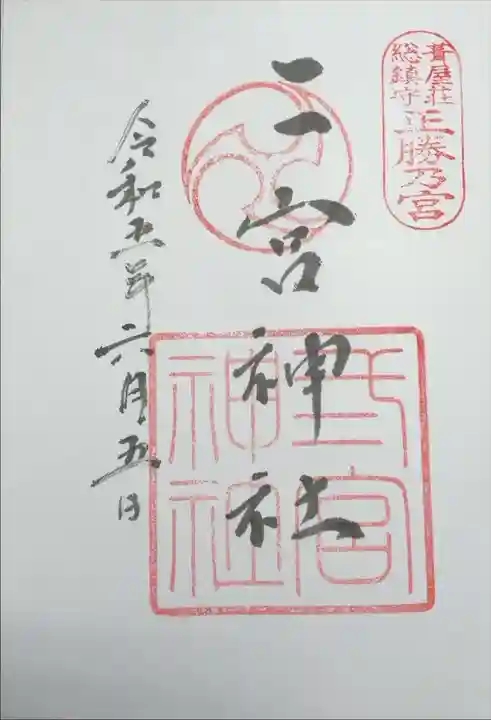 葺屋荘
総鎮守
正勝乃宮
二宮神社
弍宮
神社
令和五年六月五日